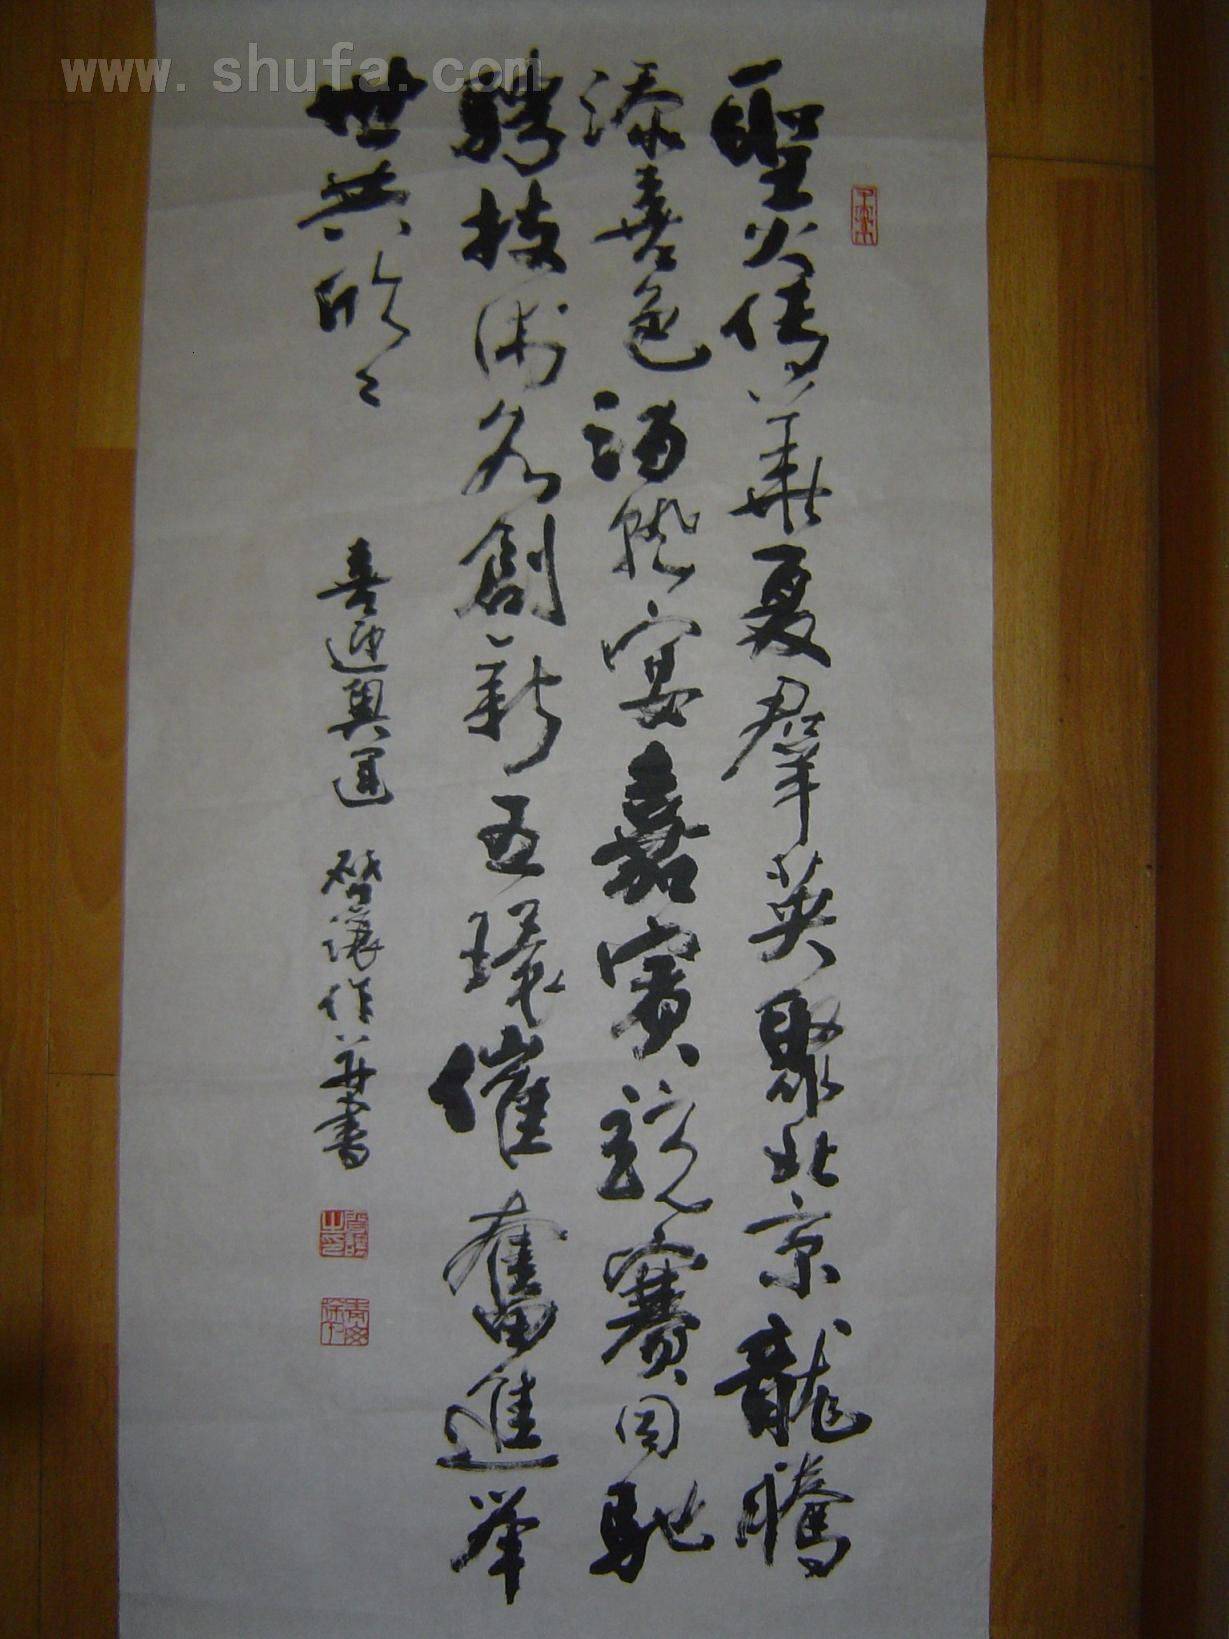 www.shufa.com
聖火传華夏群英聚北京龍騰
添喜色宴嘉賓競賽馳
騁技術創新五環催奮進举
世共欣々
喜迎奥運 作并書